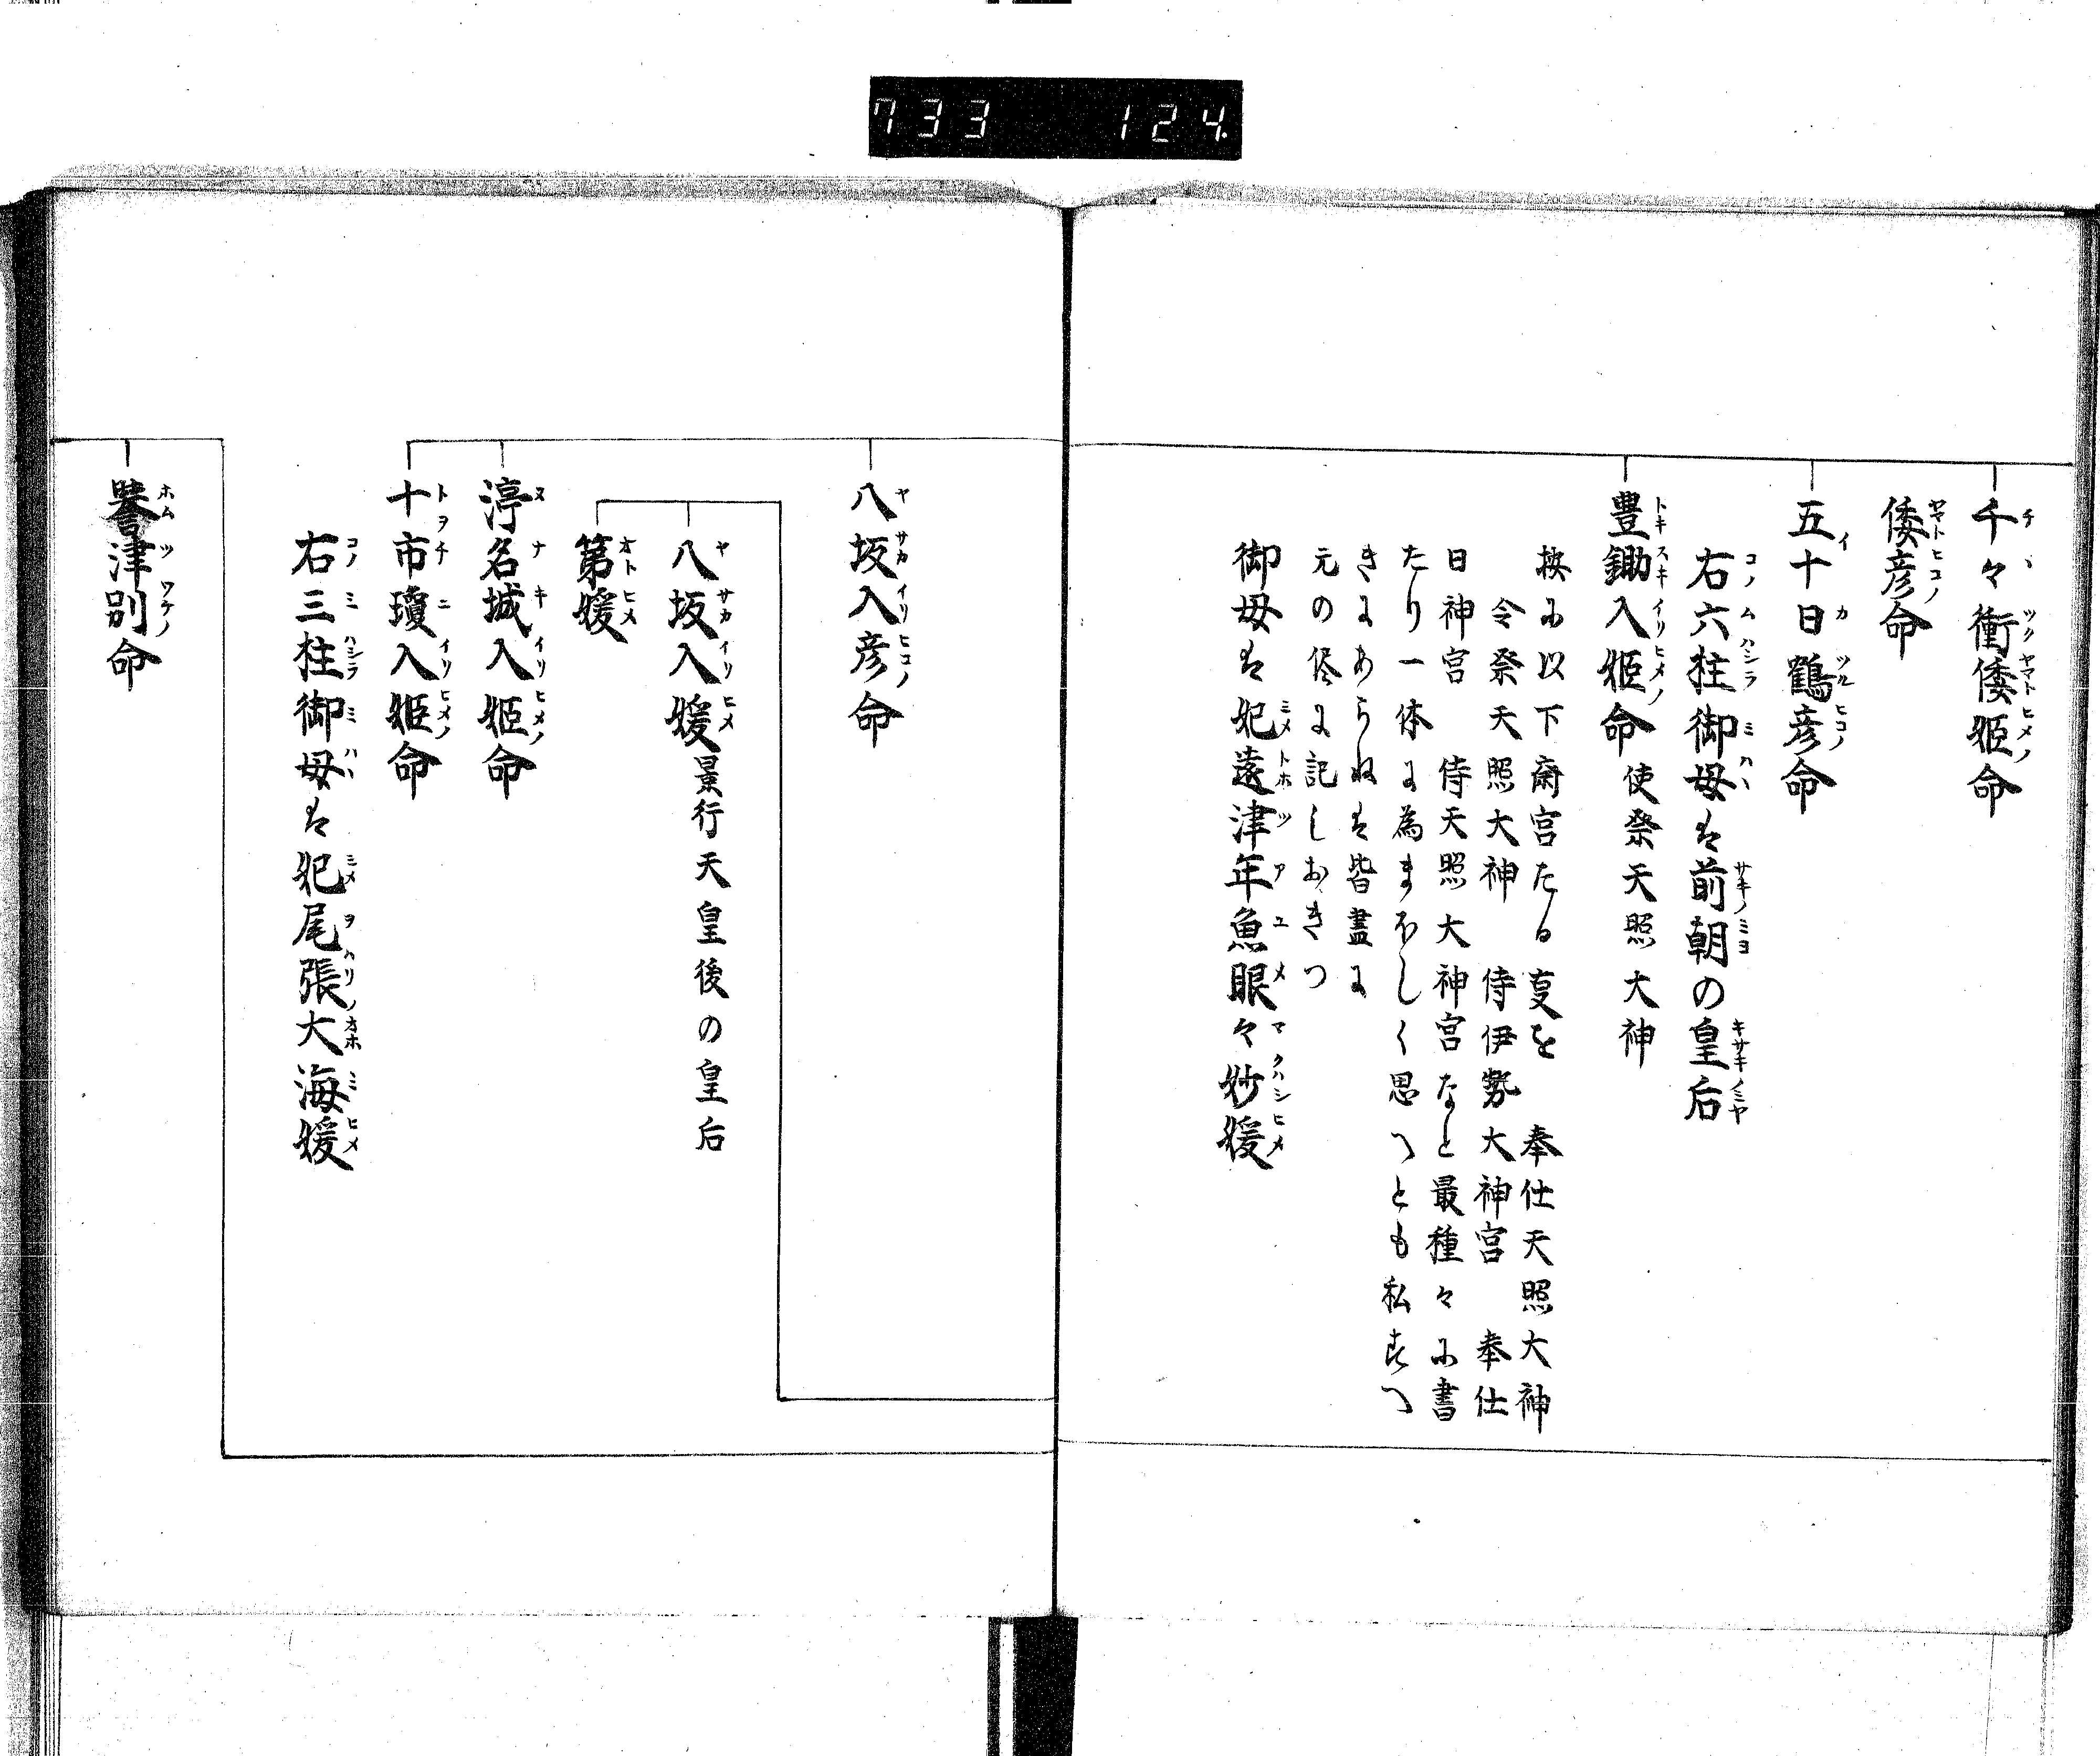 733 124.
千々衝倭姫命
倭彦命
五十日鶴彦命
右六柱御母は前朝の皇后
豊鋤入姫命 使祭天照大神
按に以下斎宮たる叓を 奉仕天照大神
令祭天照大神 侍伊勢大神宮 奉仕
日神宮 侍天照大神宮なと最種々に書
たり一体に為まほしく思へとも私すへ
きにあらねは皆盡に
元の侭に記しおきつ
御母は妃遠津年魚眼々妙媛
八坂入彦命
八坂入媛 景行天皇後の皇后
第媛
渟名城入姫命
十市瓊入姫命
右三柱御母は妃尾張大海媛
誉津別命